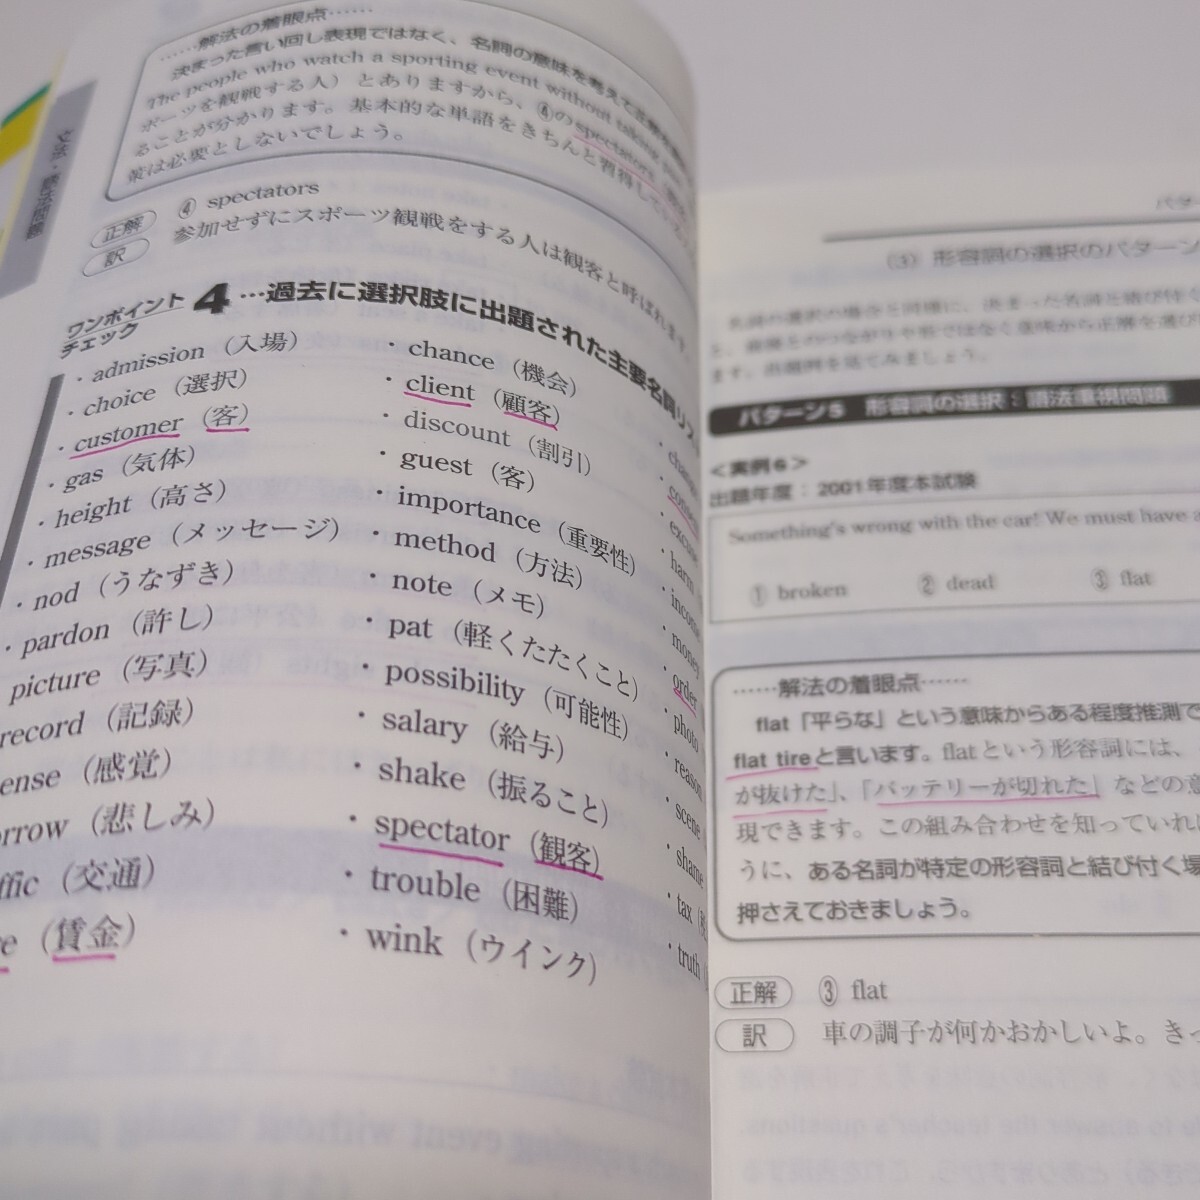 文法・語法問題
……解法の着眼点……
決まった言い回し表現ではなく、名詞の意味を考えて
The people who watch a sporting event without taking
ポーツを観戦する人）とありますから、④のspectators
ることが分かります。基本的な単語をきちんと習得して
葉は必要としないでしょう。
正解 ④ spectators
訳 参加せずにスポーツ観戦をする人は観客と呼ばれます。
ワンポイントチェック 4 …過去に選択肢に出題された主要名詞リス
・admission（入場）
・choice（選択）
・customer（客）
・gas（気体）
・height（高さ）
・message（メッセージ）
・nod（うなずき）
・pardon（許し）
picture（写真）
record（記録）
ense（感覚）
orrow（悲しみ）
ffic（交通）
e（賃金）
・chance（機会）
・client（顧客）
discount（割引）
・guest（客）
・importance（重要性）
・method（方法）
・note（メモ）
・pat（軽くたたくこと）
・possibility（可能性）
・salary（給与）
・shake（振ること）
・spectator（観客）
・trouble（困難）
・wink（ウインク）
・harm
・money
・order
・photo
・reason
・scene
・shame
・tax
・truth
パター
（3）形容詞の選択のパターン
ます。出題例を見てみましょう。
パターン5 形容詞の選択：語法重視問題
＜実例6＞
出題年度：2001年度本試験
Something's wrong with the car! We must have a
① broken ② dead ③ flat
……解法の着眼点……
flat「平らな」という意味からある程度推測で
flat tireと言います。flatという形容詞には、
が抜けた」、「バッテリーが切れた」などの意
現できます。この組み合わせを知っていれば
うに、ある名詞が特定の形容詞と結び付く場
押さえておきましょう。
正解 ③ flat
訳 車の調子が何かおかしいよ。きっ